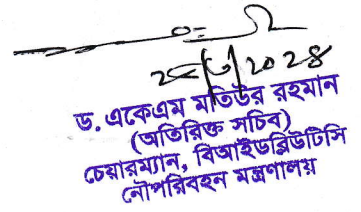 ড. একেএম মতিউর রহমান
(অতিরিক্ত সচিব)
চেয়ারম্যান, বিআইডব্লিউটিসি
নৌপরিবহন মন্ত্রণালয়